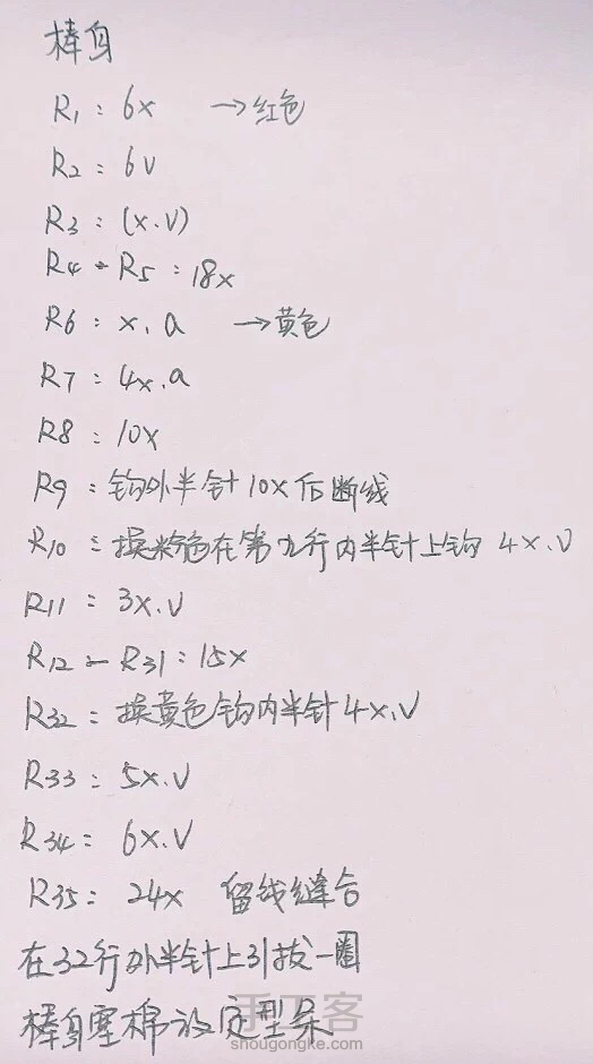 棒身
R1：6x →红色
R2：6v
R3：(x.v)
R4-R5：18x
R6：x.a →黄色
R7：4x.a
R8：10x
R9：钩外半针10x后断线
R10：换粉色在第九行内半针上钩 4x.v
R11：3x.v
R12-R31：15x
R32：换黄色钩内半针4x.v
R33：5x.v
R34：6x.v
R35：24x 留线缝合
在32行外半针上引拔一圈
棒身塞棉放定型条
手工客
shougongke.com